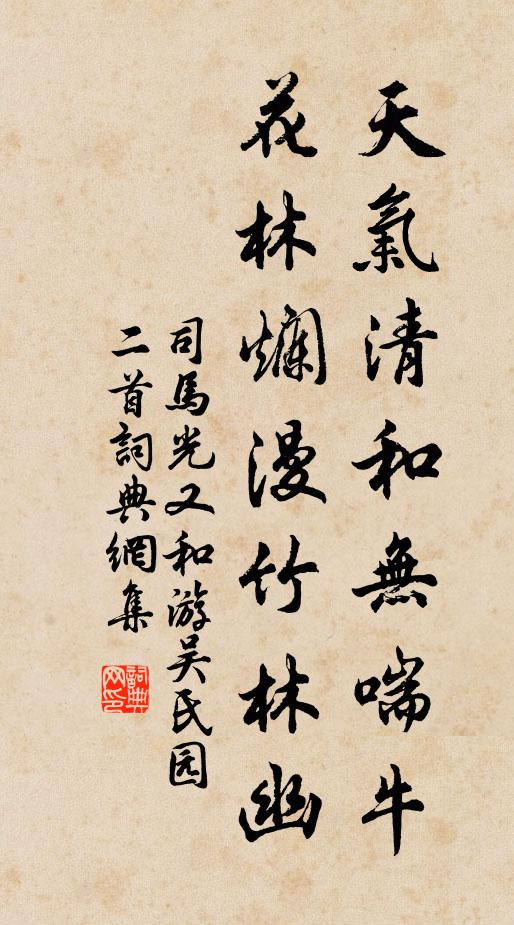 天氣清和無喘牛
花林爛漫竹林幽
司馬光又和游吴氏园
二首詞典網集
詞典网印